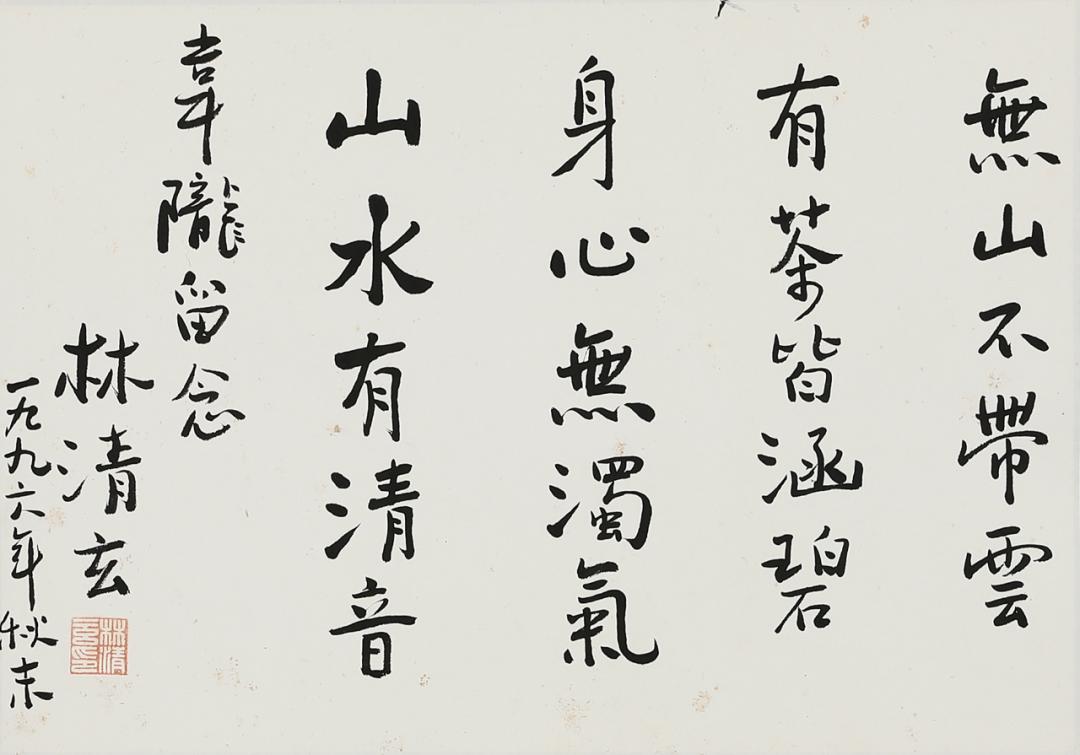 無山不帶雲
有茶皆涵碧
身心無濁氣
山水有清音
韋隴留念
林清玄
一九九六年秋末
林清玄印